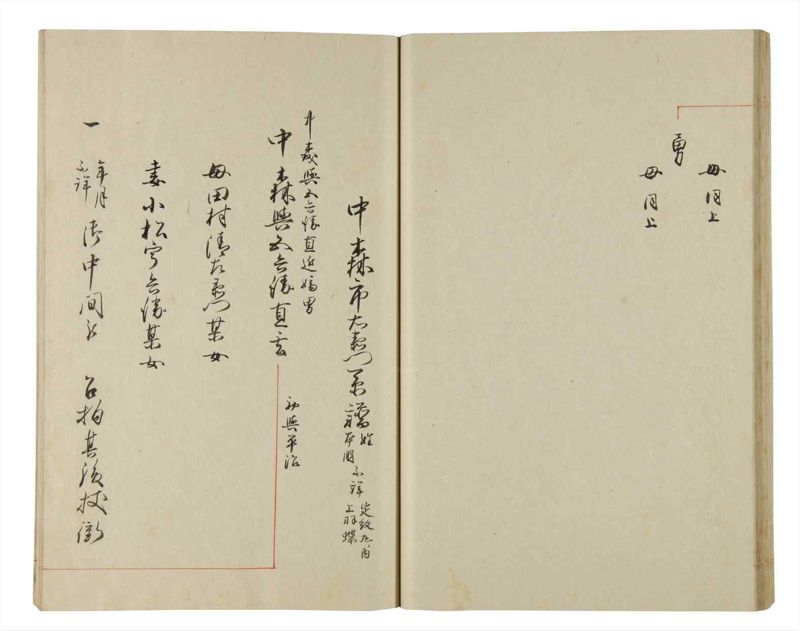 母同上
勇
母同上
中森市右衛門系譜
姓
本國不詳
定紋丸内
上羽蝶
中森與五兵衛直近嫡男
中森與五兵衛直
初與平治
母田村清左衛門某女
妻小松宇兵衛某女
一
年月
不詳
御中間
召抱其後